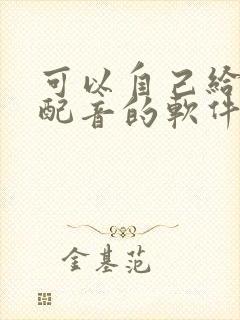 可以自己给
配音的軟件
金基范